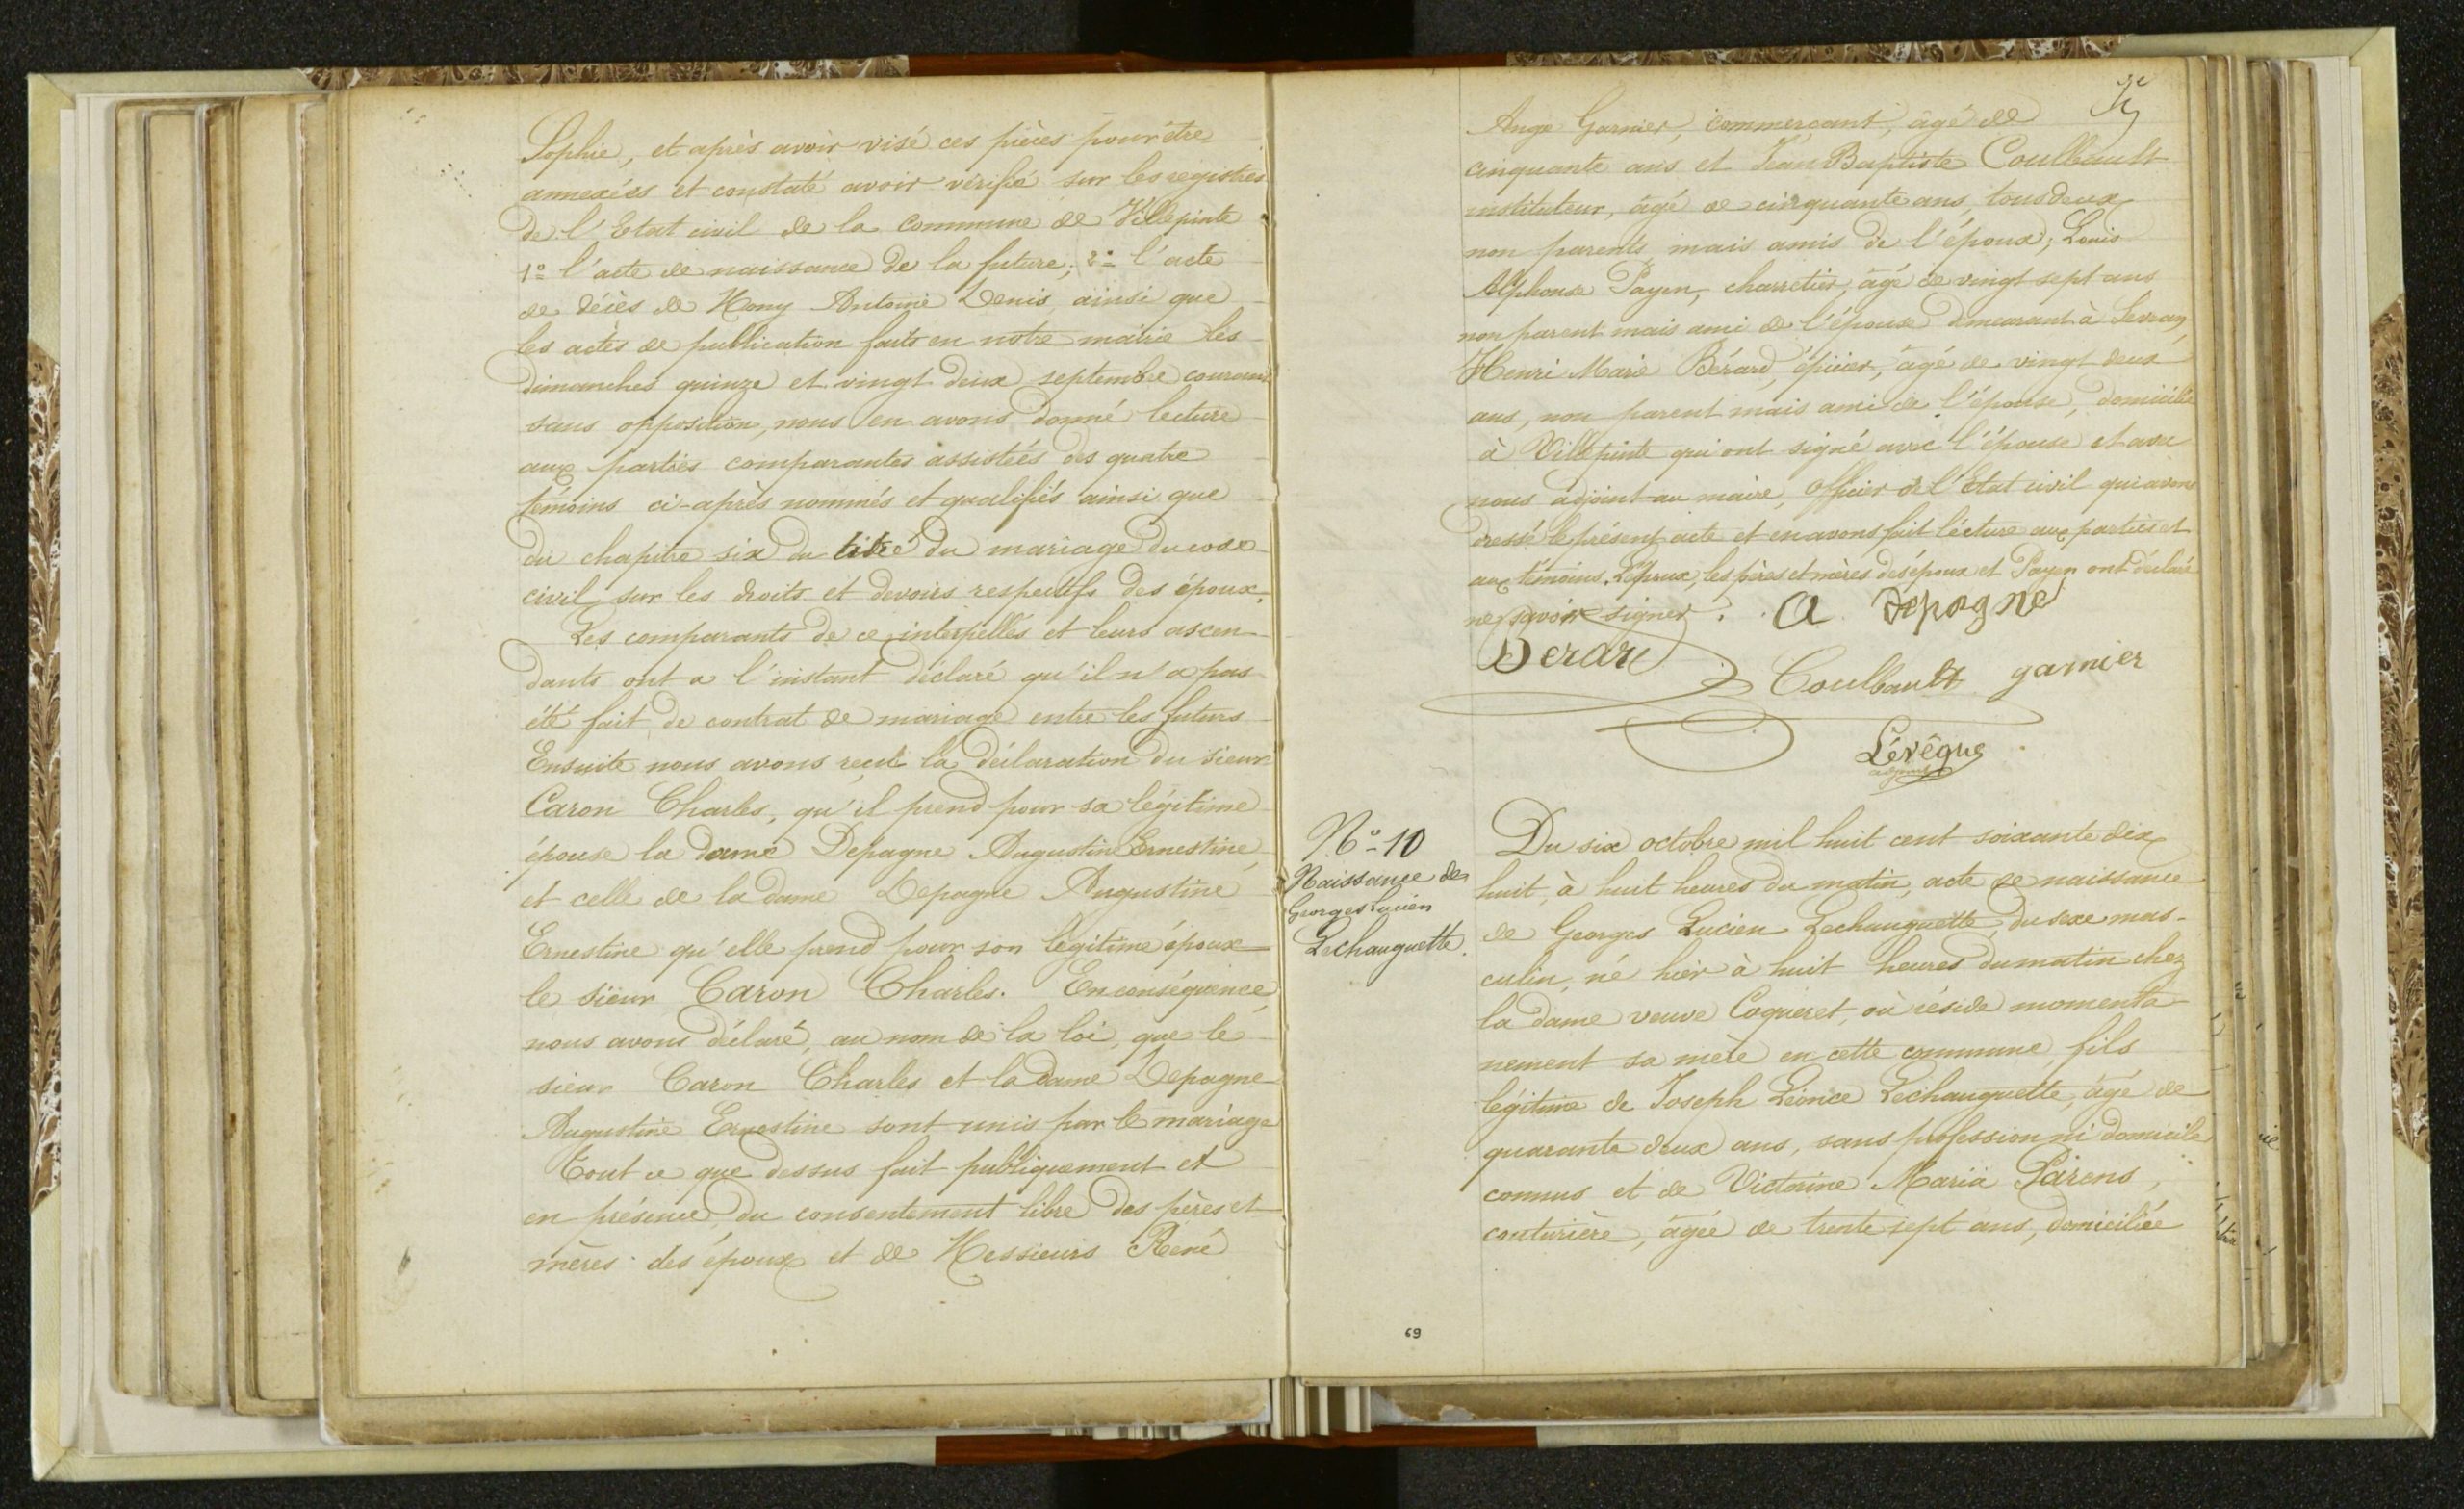 Sophie, et après avoir visé ces pièces pour être
annexées et constaté avoir vérifié sur les registres
de l'Etat civil de la commune de Villepinte
1º l'acte de naissance de la future; 2º l'acte
de décès de Hony Antoine Denis, ainsi que
les actes de publication faits en notre mairie les
dimanches quinze et vingt deux septembre courant
sans opposition, nous en avons donné lecture
aux parties comparantes assistées des quatre
témoins ci-après nommés et qualifiés ainsi que
du chapitre six du titre du mariage du code
civil sur les droits et devoirs respectifs des époux.
Les comparants de ce interpellés et leurs ascen
dants ont a l'instant déclaré qu'il n'a pas
été fait de contrat de mariage entre les futurs
Ensuite nous avons reçu la déclaration du sieur
Caron Charles, qu'il prend pour sa légitime
épouse la dame Depagne Augustine Ernestine,
et celle de la dame Depagne Augustine
Ernestine qu'elle prend pour son légitime époux
le sieur Caron Charles. En conséquence,
nous avons déclaré, au nom de la loi, que le
sieur Caron Charles et la dame Depagne
Augustine Ernestine sont unis par le mariage
Tout ce que dessus fait publiquement et
en présence, du consentement libre des pères et
mères des époux et de Messieurs René
Ange Garnier, commerçant, âgé de
cinquante ans et Jean Baptiste Coulbault
instituteur, âgé de cinquante ans, tous deux
non parents mais amis de l'époux; Louis
Alphonse Payen, charretier, âgé de vingt sept ans
non parent mais ami de l'épouse demeurant à Sevran,
Henri Marie Bérard, épicier, âgé de vingt deux
ans, non parent mais ami de l'épouse, domicilié
à Villepinte qui ont signé avec l'épouse et avec
nous adjoint au maire, officier de l'Etat civil qui avons
dressé le présent acte et en avons fait lecture aux parties et
aux témoins. L'époux, les pères et mères des époux et Payen ont déclaré
ne savoir signer. A Depagne
Berard
Coulbault garnier
Lévêque
adjoint
Nº 10
Naissance de
Georges Lucien
Lechauguette.
Du six octobre mil huit cent soixante dix
huit, à huit heures du matin, acte de naissance
de Georges Lucien Lechauguette, du sexe mas-
culin, né hier à huit heures du matin chez
la dame veuve Coqueret, où réside momenta
nement sa mère en cette commune, fils
légitime de Joseph Léonce Lechauguette, âgé de
quarante deux ans, sans profession ni domicile
connus et de Victorine Maria Parens,
couturière, âgée de trente sept ans, domiciliée
69